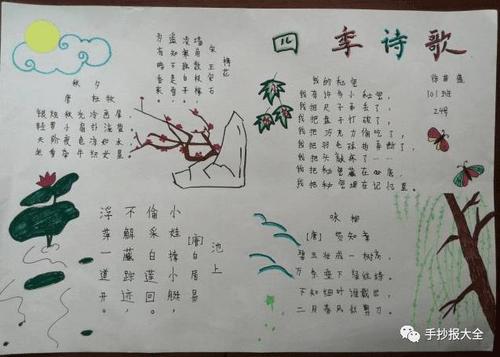 四季诗歌
101班
24号
梅花
宋 王安石
墙角数枝梅
凌寒独自开
遥知不是雪
为有暗香来
秋夕
唐 杜牧
银烛秋光冷画屏
轻罗小扇扑流萤
天阶夜色凉如水
坐看牵牛织女星
我的秘密
我有许多小秘密
我把尺子弄丢了
我把盘子打破了
我把巧克力偷吃了
我把羽毛球拍弄断了
我把头敲疼了……
我把秘密藏在心底
我把秘密埋在记忆里
池上
[唐]白居易
小娃撑小艇，
偷采白莲回。
不解藏踪迹，
浮萍一道开。
咏柳
[唐] 贺知章
碧玉妆成一树高
万条垂下绿丝绦
不知细叶谁裁出
二月春风似剪刀
手抄报大全